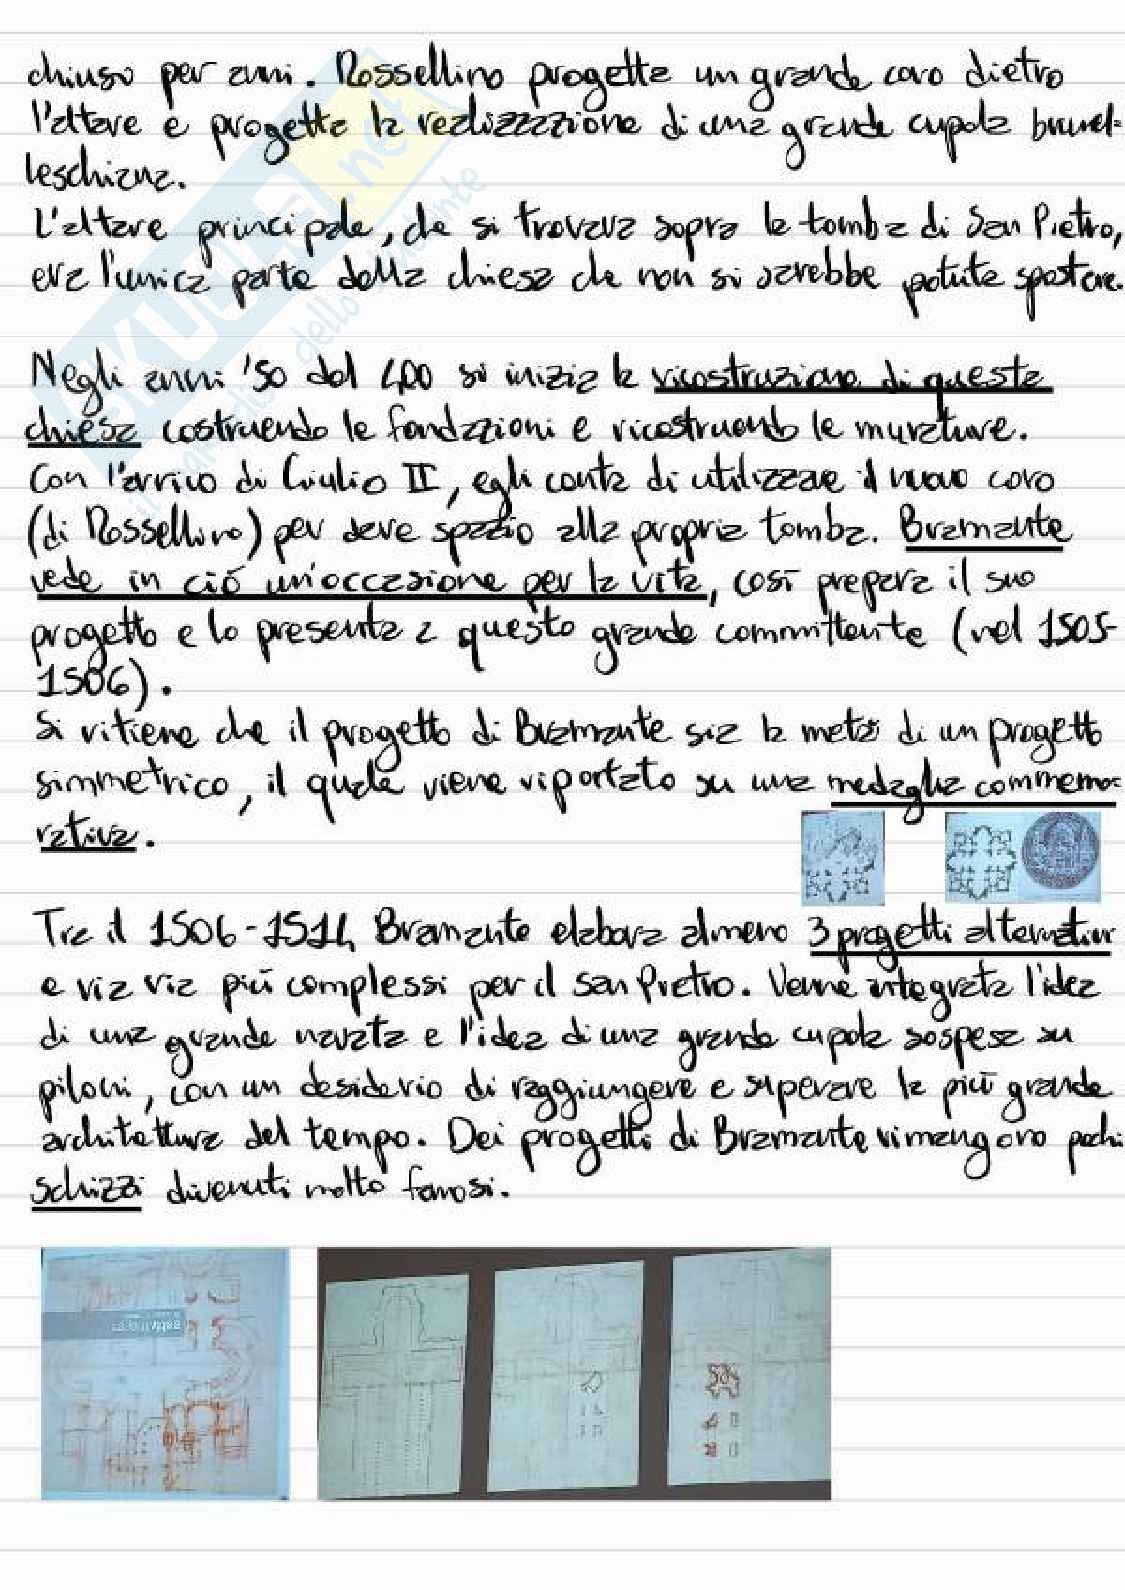 chiuso per anni. Rossellino progetta un grande coro dietro
l'altare e progetta la realizzazione di una grande cupola brunel=
leschiana.
L'altare principale, che si trovava sopra la tomba di San Pietro,
era l'unica parte della chiesa che non si sarebbe potuta spostare.
Negli anni '50 del 400 si inizia la ricostruzione di questa
chiesa costruendo le fondazioni e ricostruendo le murature.
Con l'arrivo di Giulio II, egli conta di utilizzare il nuovo coro
(di Rossellino) per dare spazio alla propria tomba. Bramante
vede in ciò un'occasione per la vita, così prepara il suo
progetto e lo presenta a questo grande committente (nel 1505-
1506).
Si ritiene che il progetto di Bramante sia la metà di un progetto
simmetrico, il quale viene riportato su una medaglia commemo=
rativa.
Tra il 1506-1514 Bramante elabora almeno 3 progetti alternativi
e via via più complessi per il San Pietro. Venne integrata l'idea
di una grande navata e l'idea di una grande cupola sospesa su
piloni, con un desiderio di raggiungere e superare la più grande
architettura del tempo. Dei progetti di Bramante rimangono pochi
schizzi divenuti molto famosi.
SKUOLA.net
il portale dello studente